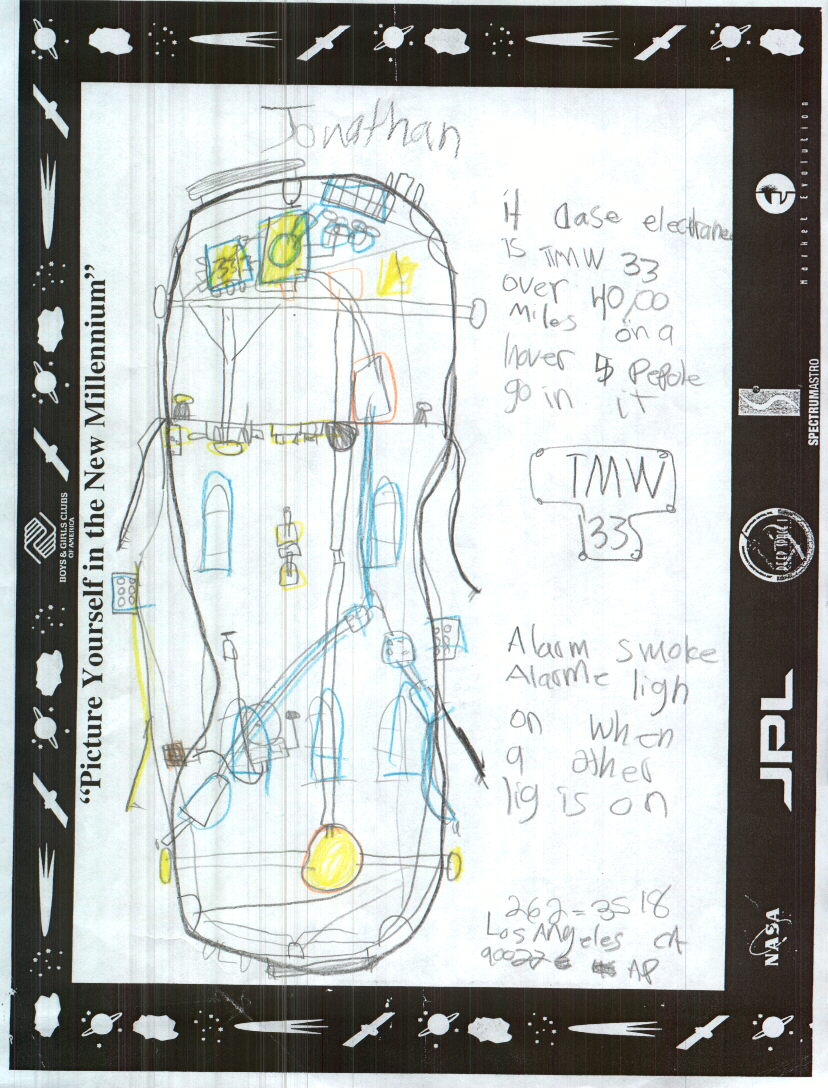 Jonathan
"Picture Yourself in the New Millennium"
BOYS & GIRLS CLUBS
OF AMERICA
33
if dase electrane
is TMW 33
over 40,00
Miles on a
hover 5 Pepole
go in it
TMW
33
Alarm smoke
Alarme ligh
on when
a other
lig is on
262-3518
Los Angeles CA
90022 AP
Market Evolution
SPECTRUMASTRO
DEEP SPACE 1
JPL
NASA